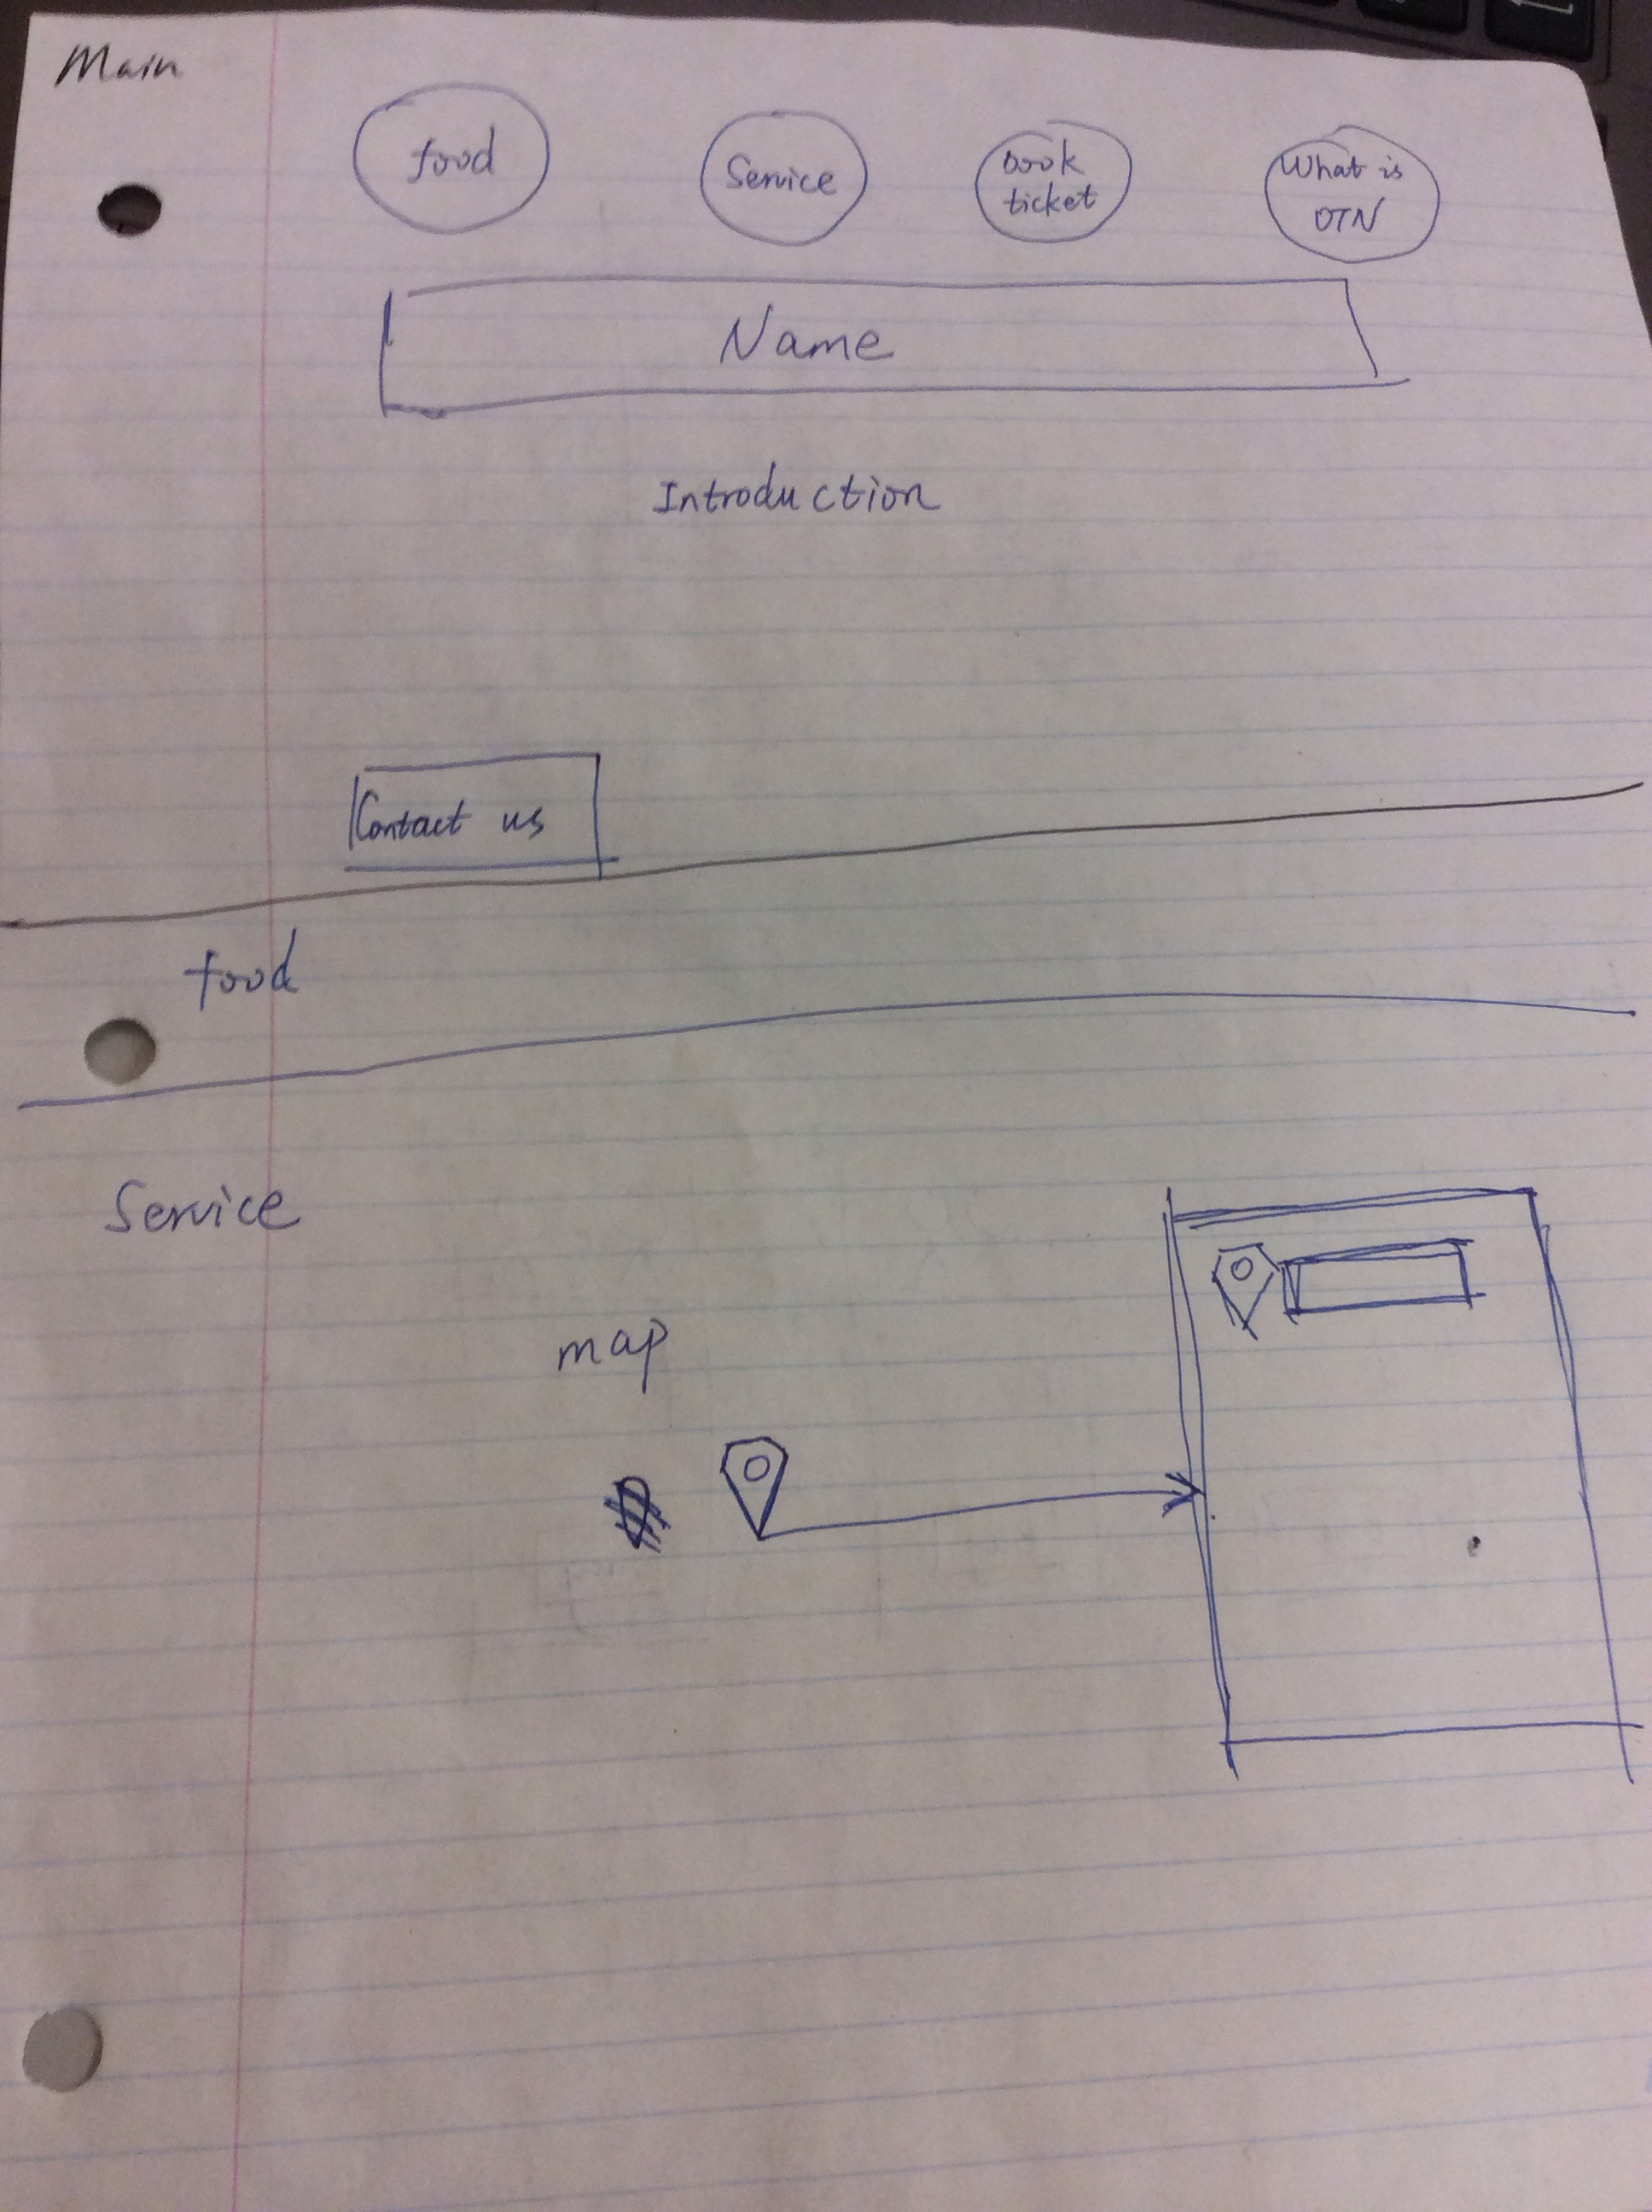 Main
food
Service
book
ticket
What is
OTN
Name
Introduction
Contact us
food
Service
map